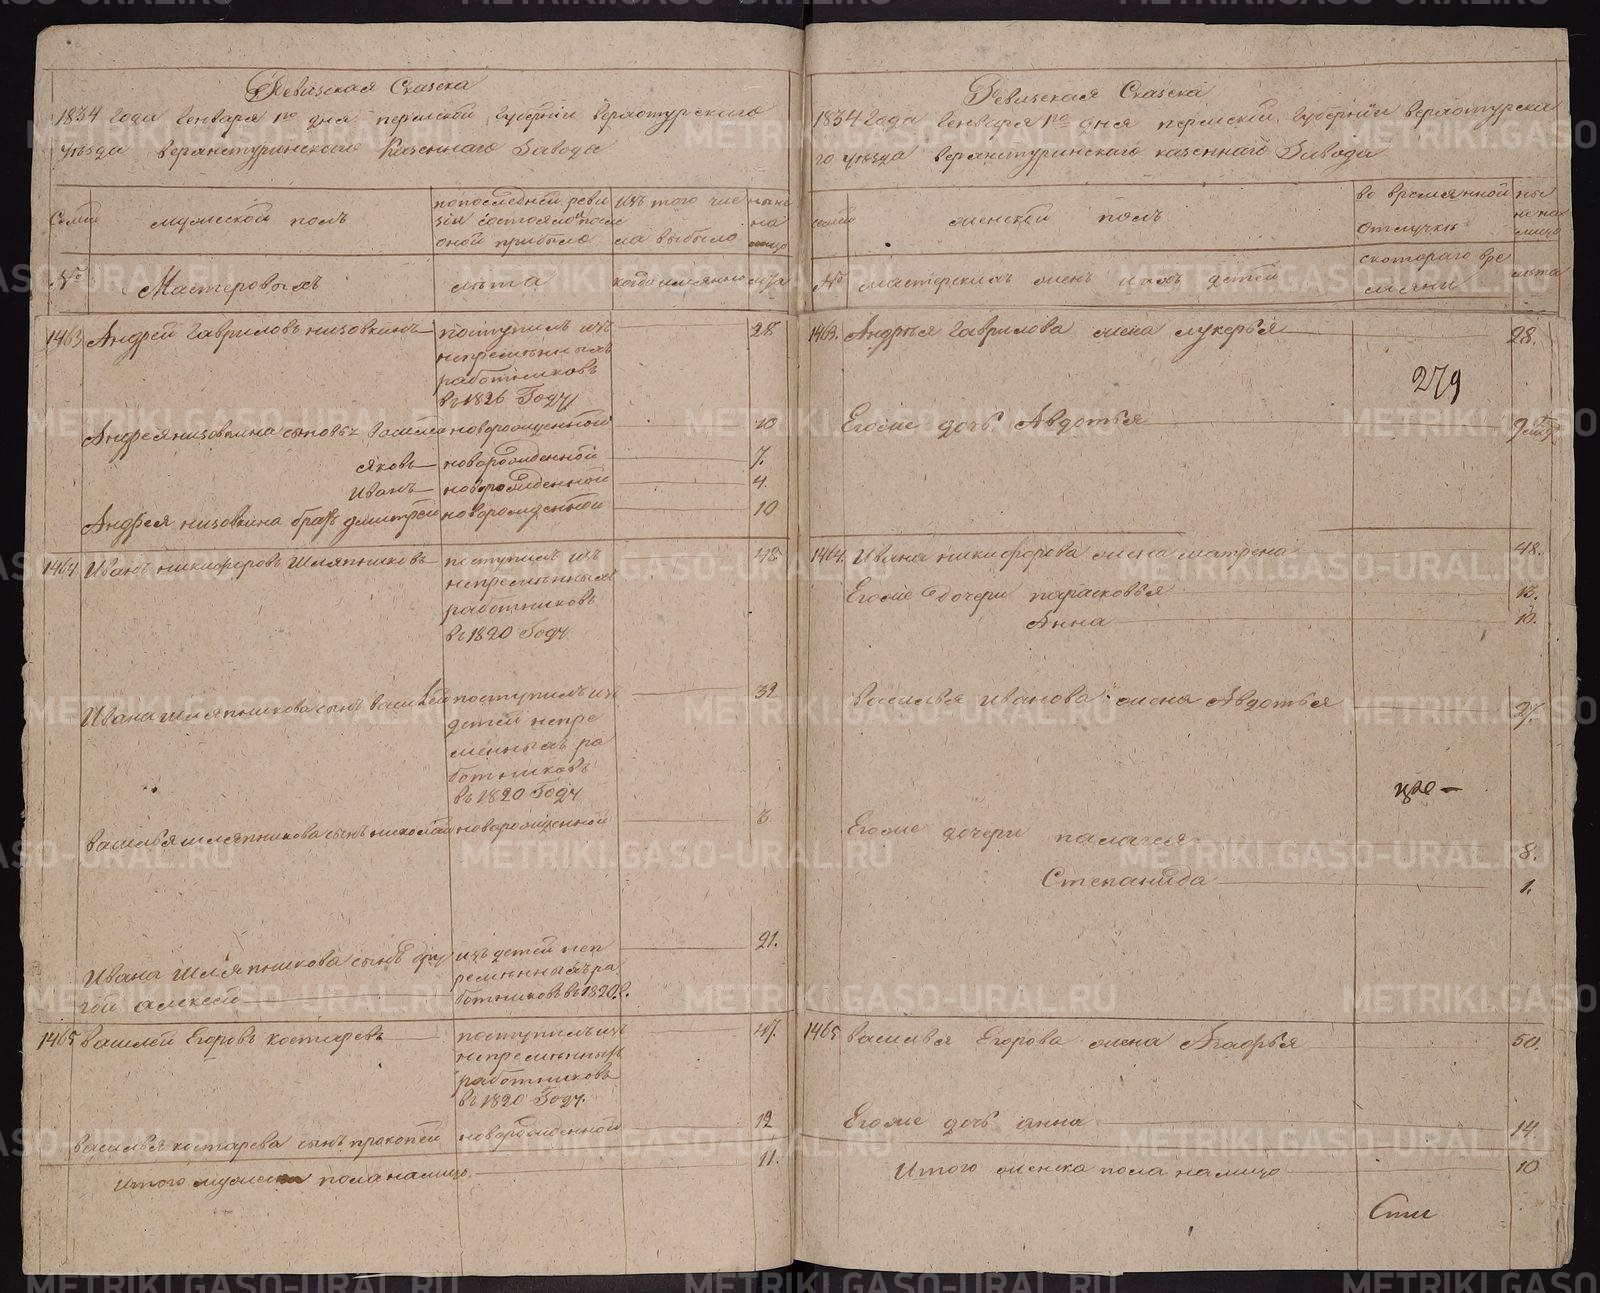 Ревизская Сказка
1834 Года Генваря 1го дня пермской губернии верхотурского
уезда верхнетуринского Казенного Завода
Семьи
мужеской полъ
по последней реви
зіи состояло и после
оной прибыло
изъ того чис
ла выбыло
ныне
на
лицо
№
Мастеровыхъ
лѣта
когда имянно
лѣта
1463 Андрей Гавриловъ низовкинъ
поступилъ изъ
непременныхъ
работниковъ
въ 1826 Году
28
Андрея низовкина сыновья новорожденной 10
яковъ новорожденной 7.
Иванъ новорожденной 4
Андрея низовкина братъ дмитрей новорожденной 10
1464 Иванъ никифоровъ Шляпниковъ
поступилъ изъ
непременныхъ
работниковъ
въ 1820 Году
48
Ивана шляпникова сынъ василей поступилъ изъ
детей непре
менныхъ ра
ботниковъ
въ 1820 Году
32
василья шляпникова сынъ николай новорожденной 3
Ивана Шляпникова сынъ дру
гой алексей
изъ детей неп
ременныхъ ра
ботниковъ въ 1820 г.
21.
1465 василей Егоровъ костаревъ
поступилъ изъ
непременныхъ
работниковъ
въ 1820 Году.
47.
василья костарева сынъ прокопей новорожденной 12
Итого мужеска пола налицо 11.
Ревизская Сказка
1834 Года Генваря 1го дня пермской Губернии верхотурска
го уезда верхнетуринскаго казеннаго Завода
семьи
женской полъ
во временной
отлучки
ны
не на
лицо
№
мастерскихъ женъ и ихъ детей
с котораго вре
мени
лѣта
1463. Андрея Гаврилова жена лукерья 28.
279
Егоже дочь Авдотья
1464. Ивана никифорова жена матрена 48.
Егоже дочери парасковья 13.
Анна 10.
василья иванова жена Авдотья 27.
Егоже дочери палагея 8.
Степанида 1.
1465 василья Егорова жена Агафья 50.
Егоже дочь анна 14.
Итого женска пола налицо 10
METRIKI.GASO-URAL.RU